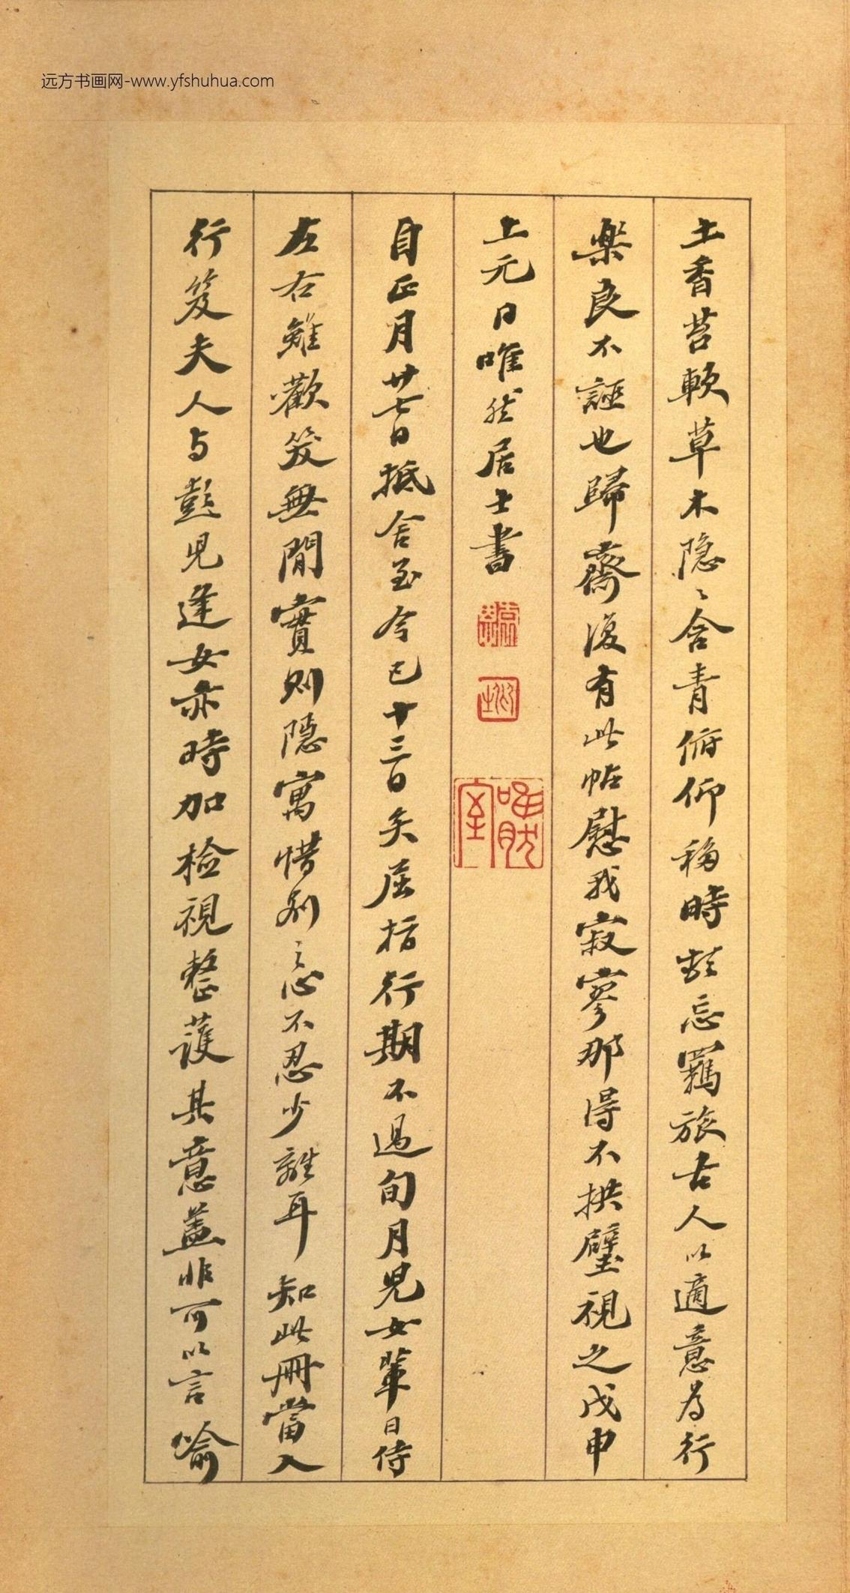 远方书画网-www.yfshuhua.com
土香苔軟草木隐〻含青俯仰移時頓忘羈旅古人以適意為行
樂良不誣也歸齋復有此帖慰我寂寥那得不拱璧視之戊申
上元日唯然居士書
自正月廿七日抵舍至今已十三日矣屈指行期不過旬月兒女輩日侍
左右雖歡笑無間實則隱寓惜別之心不忍少離耳知此冊當入
行笈夫人与彭兒逢女亦時加檢視整護其意蓋非可以言喻